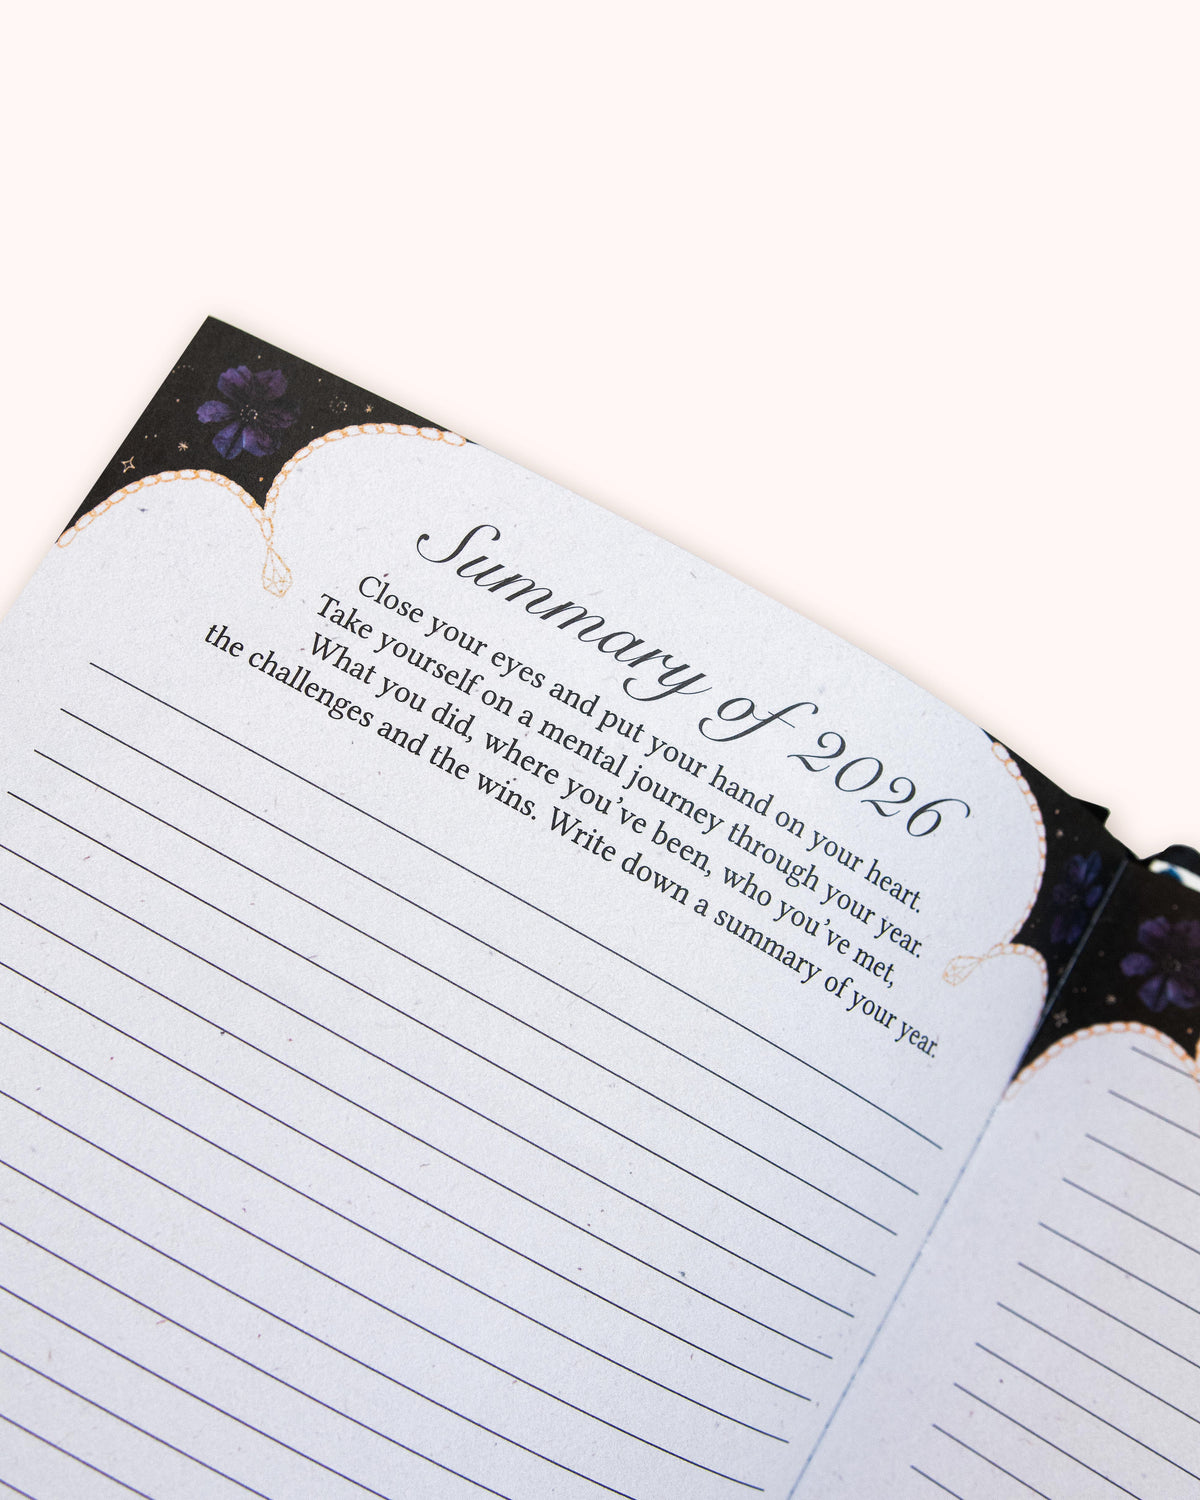 Summary of 2026
Close your eyes and put your hand on your heart.
Take yourself on a mental journey through your year.
What you did, where you’ve been, who you’ve met,
the challenges and the wins. Write down a summary of your year.